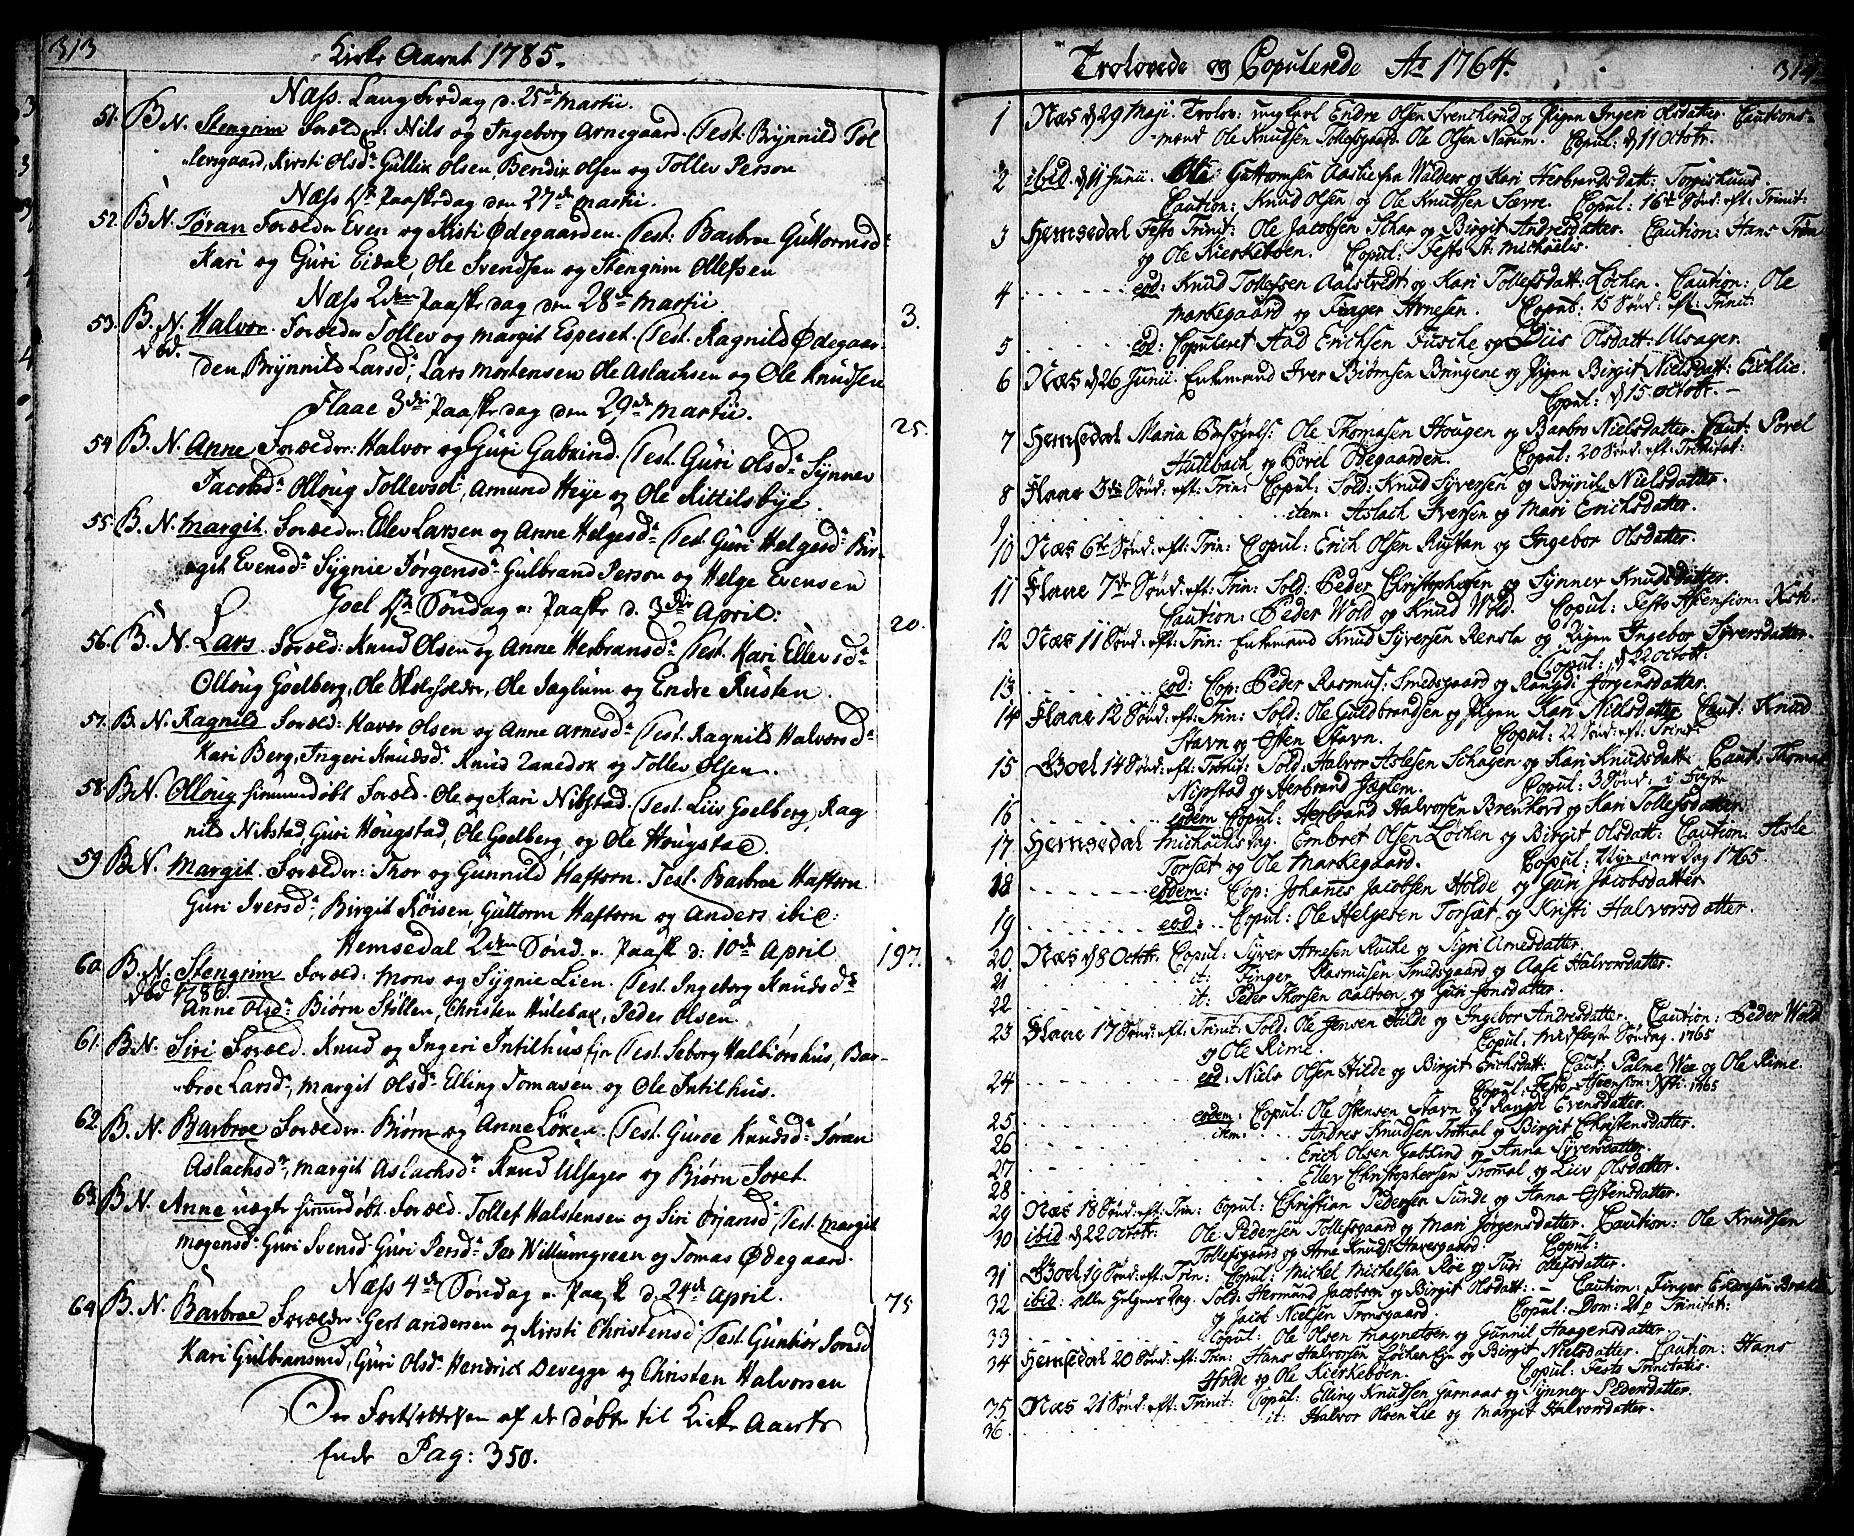 313
Kirke Aaret 1785.
Næss. Langfredag d. 25de Martii.
51. B. N. Stengrim Forældre: Nils og Ingeborg Arnegaard. Test. Brynnild Tol
levsgaard, Kirsti Olsdr Gullix Olsen, Bendix Olsen og Tollev Person
Næss 1ste Paaskedag den 27de Martii.
52. B N. Tøran Forældre Even og Kisti Ødegaarden. Test: Barbroe Guttormsd:
Kari og Guri Eidal, Ole Svendsen og Stengrim Ollefsen
Næss 2den Paaskedag den 28de Martii
53. B. N. Halvor. Forældre Tollev og Margit Espeset. Test. Ragnild Ødegaar- 3.
død.
den Brynnild Larsd, Lars Mortensen Ole Aslachsen og Ole Knudsen
Flaae 3die Paaskedag den 29de Martii.
54 B. N. Anne Forældre: Halvor og Guri Gabrind. Test. Guri Olsdr Synnev 25.
Jacobsdr Olloug Tollevsd, Amund Heye og Ole Kittilsbye.
55. B. N. Margit. Forældre: Ellev Larsen og Anne Helgesdr Test. Guri Helgesdr Bir-
git Evensdr Sygnie Jørgensdr Gulbrand Person og Helge Evensen
Goel 1ste Søndag e: Paaske d. 3die April: 20.
56. B. N. Lars. Foræld: Knud Olsen og Anne Herbransdr Test. Kari Ellevsdr
Olloug Goelberg, Ole Skoleholder, Ole Jaglum og Endre Rusten.
57. B. N. Ragnild Foræld: Haver Olsen og Anne Arnesdr Test. Ragnild Halvorsdr
Kari Berg, Ingeri Knudsd. Knud og Tollev Olsen.
58. B N. Olloug hiemmedøbt Foræld. Ole og Kari Nibstad. Test. Liiv Goelberg, Rag
nild Nibstad, Guri Hougstad, Ole Goelberg og Ole Hougstad.
59. B. N. Margit. Forældre: Thor og Gunnild Haftorn. Test. Barbroe Haftorn
Guri Iversdr, Birgit Røisen, Guttorm Haftorn og Anders ibid:
Hemsedal 2den Sønd. e. Paaske d: 10de April 197.
60. B. N. Stengrim Foræld: Mons og Sygnie Lien. Test. Ingeborg Knudsdr
død 1786.
Anne Olsdr Biørn Støllen, Christen Hulebak, Peder Olsen.
61. B N. Siri Foræld. Knud og Ingeri Intilhus Test. Seborg Halbiørshus, Bar-
broe Larsdr, Margit Olsdr Elling Tomasen og Ole Intilhus.
62. B. N. Barbroe Forældre. Biørn og Anne Løken. Test. Guroe Knudsdr Jøran
Aslachsdr, Margit Aslachsdr Knud Ulsager og Biørn Toret.
63. B N. Anne uægte hiemmedøbt. Foræld. Tollef Halstensen og Siri Ørjansd Test. Margit
Mogensdr Guri Svensd Guri Persdr Per Willumgreen og Tomas Ødegaard.
Næss 4de Søndag e. Paaske d. 24de April.
64. B. N. Barbroe Forældre: Gert Andersen og Kirsti Christensd Test. Gunbiør Jonsd 75
Kari Gulbransmd, Guri Olsdr Hendrick Devegge og Christen Halvorsen
Den Fortsættelsen af de Døbte til Kirke Aarets
Ende Pag: 350.
Trolovede og Copulerede Ao 1764. 314
1 Næs d 29 Maji. Trolov: ungkarl Endre Olsen Svenckerud og Pigen Ingeri Olsdatter. Cautions-
mænd Ole Knudsen Tollefsgaard. Ole Olsen Narum. Copul: d 11 Octobr.
2 ibid. d 11 Junii. Ole Guttormsen Aasliesen Walders og Kari Herbrandsdatt: Torgishuus.
Caution: Knud Olsen og Ole Knudsen Sævre. Copul: 16te Sønd: eft: Trinit:
3 Hemsedal Festo Trinit: Ole Jacobsen Schar og Birgit Andresdatter. Caution: Hans Trøn
og Ole Kierkebøen. Copul: Festo St. Michaelis.
4 eod: Knud Tollefsen Aalstvedt og Kari Tollefsdatt: Løcken. Caution: Ole
Markegaard og Finger Arnesen. Copul: 15 Sønd: eft: Trinit:
5 eod: Copuleret Aad Erichsen Fusche og Liis Olsdatt: Ulsager
6 Næs d 26 Junii. Enkemand Iver Biørnsen Bringene og Pigen Birgit Nielsdatt: Eichlie.
Copul: d 15 Octobr.
7 Hemsedal Maria Besøgels: Ole Thomasen Hougen og Barbro Nielsdatter. Caut: Povel
Hullbach og Povel Ødegaarden. Copul: 20 Sønd: eft: Trinitat:
8 Flaae 3die Sønd: eft: Trin: Copul: Sold: Knud Syversen og Brynil Nielsdatter.
9 item: Aslach Iversen og Mari Erichsdatter.
10 Næs 6te Sønd: eft: Trin: Copul: Erich Olsen Rustan og Ingebor Olsdatter.
11 Flaae 7de Sønd: eft: Trin: Sold: Peder Christophersen og Synnev Knudsdatter.
Caution: Peder Wold og Knud Wold. Copul: Festo Ascension: Xsti.
12 Næs 11 Sønd: eft: Trin: Enkemand Knud Syversen Rensla og Pigen Ingebor Syversdatter.
Copul: d 22 Octobr:
13 eod: Cop: Peder Rasmus: Smedsgaard og Rangdi Jørgensdatter.
14 Flaae 12 Sønd: eft: Trin: Sold: Ole Guldbrandsen og Pigen Kari Nielsdatter Caut: Knud
Stavn og Østen Stavn. Copul: 22 Sønd: eft: Trinit:
15 Goel 14 Sønd: eft: Trinit: Sold: Halvor Aslesen Schagen og Kari Knudsdatt: Caut: Thomas
Nipstad og Herbrand Jeglem. Copul: 3 Sønd: i Faste
16 eodem Copul: Herbrand Halvorsen Brenhovd og Kari Tollefsdatter
17 Hemsedal Michaelis Dag. Embret Olsen Løcken og Birgit Olsdatt: Caution: Asle
Torsæt og Ole Markegaard. Copul: Nye aars Dag 1765.
18 eodem: Cop: Johanes Jacobsen Holde og Guri Jacobsdatter
19 eod: Copul: Ole Helgesen Torsæt og Kristi Halvorsdatter.
20 Næs d 8 Octobr. Copul: Syver Arnesen Rucke og Sigri Arnesdatter.
21 it: Finger Rasmusen Smedsgaard og Aase Halvorsdatter.
22 it: Peder Thorsen Aaltoen og Guri Jonsdatter.
23 Flaae 17 Sønd: eft: Trinit: Sold: Ole Jensen Hilde og Ingebor Andresdatter. Caution: Peder Wold
og Ole Rime. Copul: Midfaste Søndag. 1765
24 eod: Niels Olsen Hilde og Birgit Erichsdatt: Caut: Palme Wee og Ole Rime.
Copul: Festo Ascension: Xsti: 1765
25 eodem: Copul: Ole Østensen Stavn og Rangdi Evensdatter.
26 item: Andres Knudsen Trommal og Birgit Christensdatter.
27 Erich Olsen Gabrind og Anna Syversdatter.
28 Ellev Christophersen Trommal og Liiv Olsdatter.
29 Næs 18 Sønd: eft: Trin: Copul: Christian Pedersen Sunde og Anna Østensdatter.
30 ibid d 22 Octobr: Ole Pedersen Tollefsgaard og Mari Jørgensdatter. Caution: Ole Knudsen
Tollefsgaard og Arne Knuds: Haversgaard: Copul:
31 Goel 19 Sønd: eft: Trin: Copul: Michel Michelsen Roe og Turi Ollefsdatter.
32 ibid: Alle Helgens Dag. Sold: Hermand Jacobsen og Birgit Olsdatt: Caution: Finger Endresen Bralla
og Jacob Nielsen Tronsgaard. Copul: Dom: 21 p Trinitat:
33 Copul: Ole Olsen Magnetoen og Gunnil Haagensdatter.
34 Hemsedal 20 Sønd: eft: Trin: Hans Halvorsen Løcken og Birgit Nielsdatter. Caution: Hans
Holde og Ole Kierkebøen. Copul: Festo Trinitatis.
35 Næs 21 Sønd: eft: Trinit: Copul: Elling Knudsen Garnaas og Synnev Pedersdatter.
36. it: Halvor Olsen Lie og Margit Halvorsdatter.